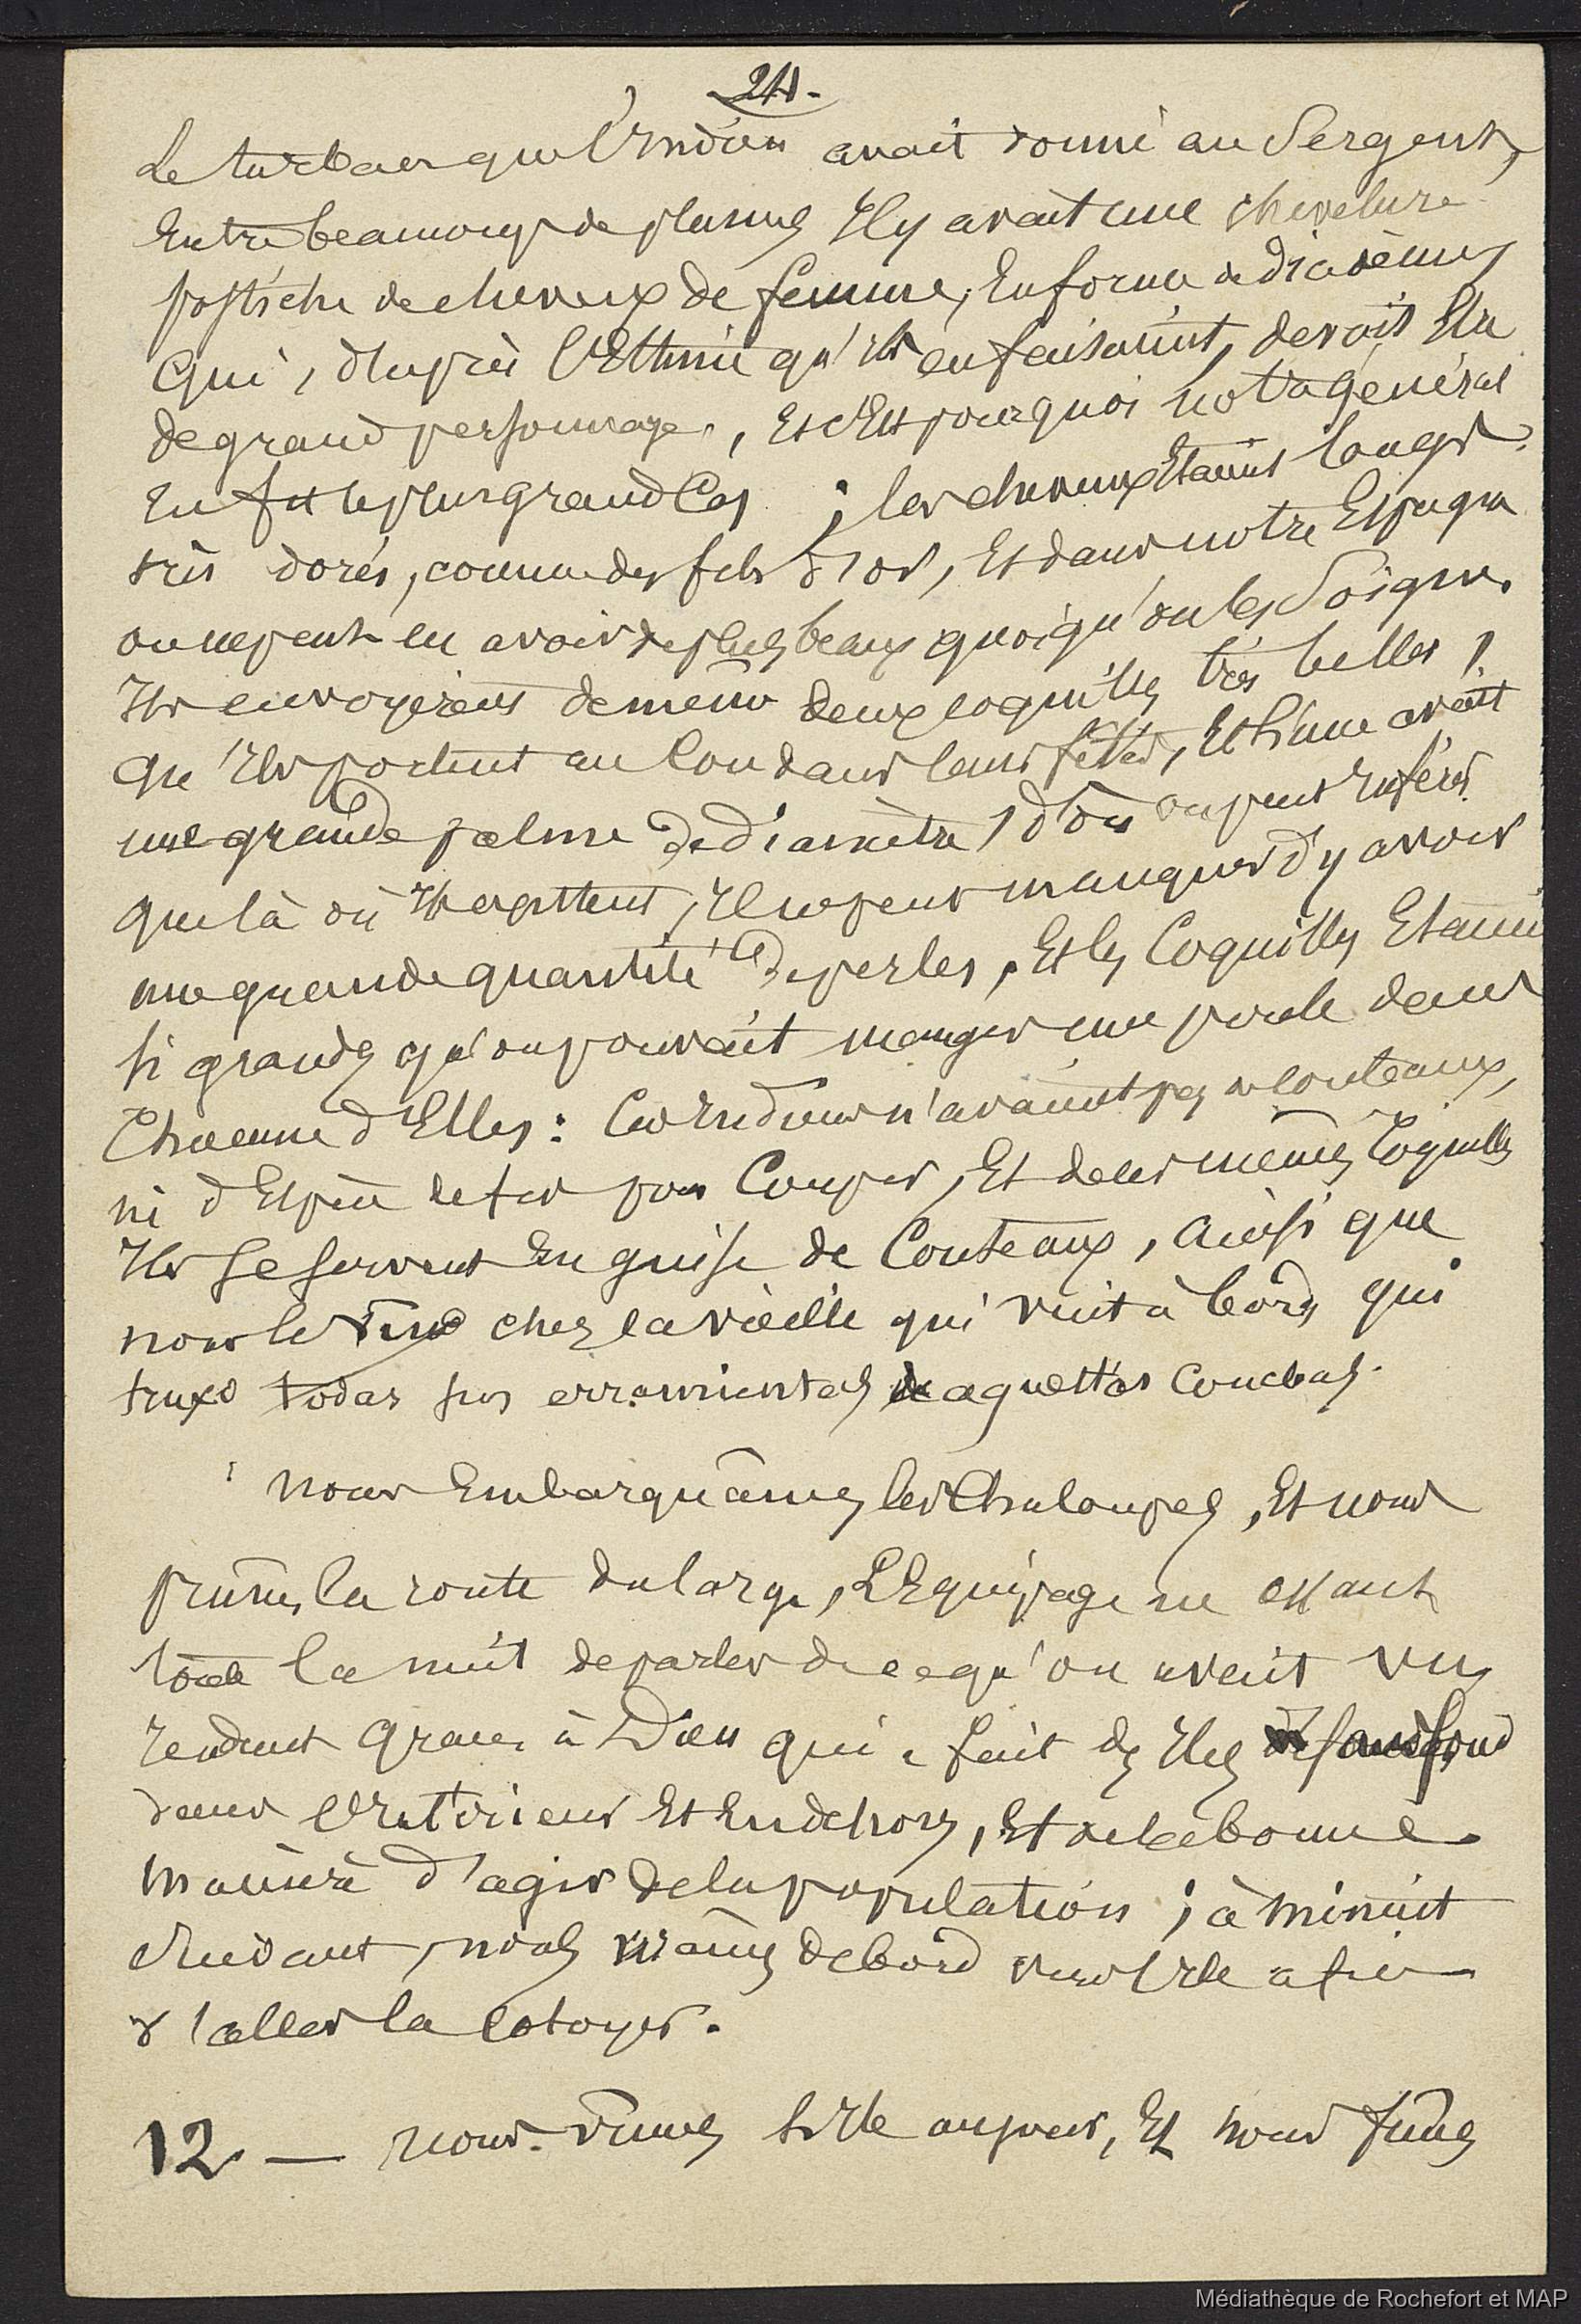 24.
Le turban que l'Indien avait donné au Sergent,
Entre beaucoup de plumes Il y avait une chevelure
postiche de cheveux de femme, En forme de diadème,
Qui, d'après l'Estime qu'ils en faisaient, devait Etre
de grand personnage, Et c'Est pourquoi notre général
En fit le plus grand Cas ; les cheveux Etaient longs
très dorés, comme des fils d'or, Et dans notre Espagne
on ne peut en avoir de plus beaux quoiqu'on les Soigne.
Ils envoyèrent de même deux coquilles très belles,
Qu'Ils portent au Cou dans leurs fêtes, Et l'une avait
une grande palme de diamètre, d'où on peut Inférer
que là où Ils habitent, Il ne peut manquer d'y avoir
une grande quantité de perles, Et les Coquilles Etaient
si grandes qu'on pouvait manger une poule dans
Chacune d'Elles : Ces Indiens n'avaient pas de couteaux,
ni d'Espèce de fer pour Couper, Et de ces mêmes Coquilles
Ils se servent En guise de Couteaux, ainsi que
nous le vîmes chez la vieille qui vint à bord, qui
truxo todas sus erramientas de aquestas conchas.
Nous Embarquâmes les Chaloupes, Et nous
prîmes la route du large, L'Equipage ne cessant
toute la nuit de parler de ce qu'on avait vu,
rendant Graces à Dieu qui a fait des Iles sans fond
dans l'Intérieur Et En dehors, Et de la bonne
manière d'agir de la population ; à minuit
nous virâmes de bord vers l'Ile afin
d'aller la cotoyer.
12. — Nous vîmes l'Ile au jour, Et nous fûmes
Médiathèque de Rochefort et MAP